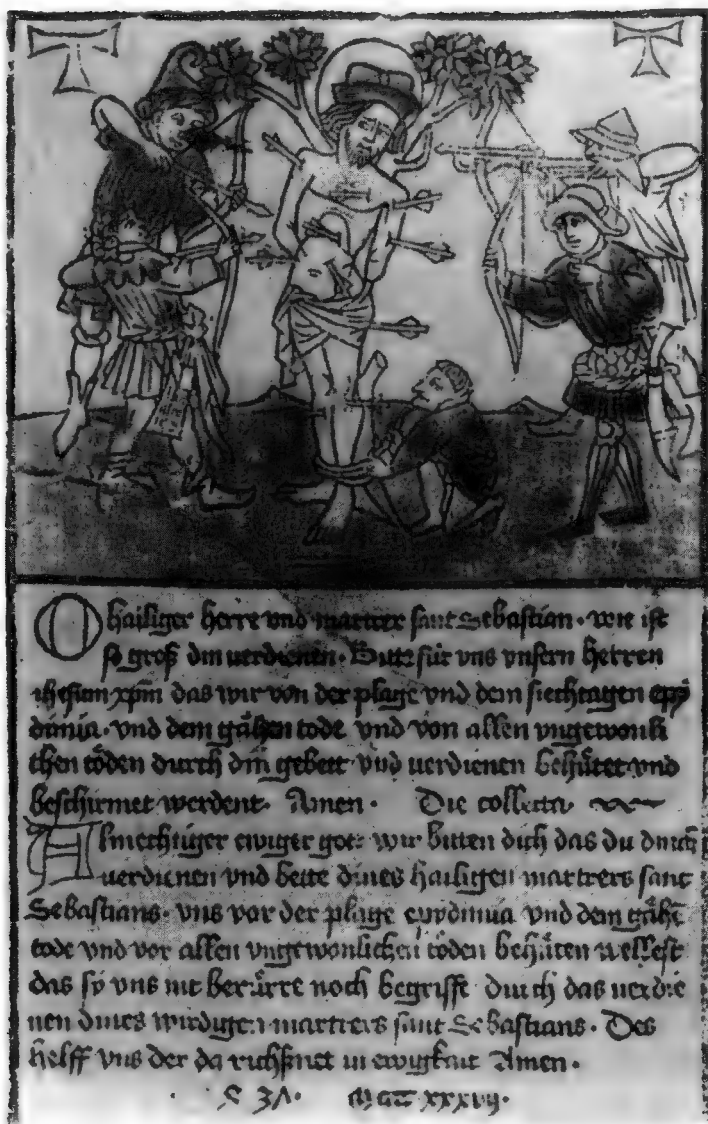 O hailiger herre vnd martrer sant Sebastian · wie ist
so groß din uerdienen · Bitt für vns vnsern herren
ihesum xpm̄ das wir von der plage vnd dem siechtagen epy
dimia · vnd dem gåhen tode vnd von allen vngewonli
chen tôden durch din̄ gebett vnd uerdienen behůtet vnd
beschirmet werdent · Amen · Die collecta ·
Almechtiger ewiger got · wir bitten dich das du durch
uerdienen vnd bette dines hailigen martrers sant
Sebastians · vns vor der plage epydimia vnd dem gåhē
tode vnd vor allen vngewonlichen tôden behůten wellest
das sy vns nit berůrre noch begriffe durch das uerdie
nen dines wirdigen martrers sant Sebastians · Des
helff vns der da richßnet in ewigkait Amen ·
xxxvij ·